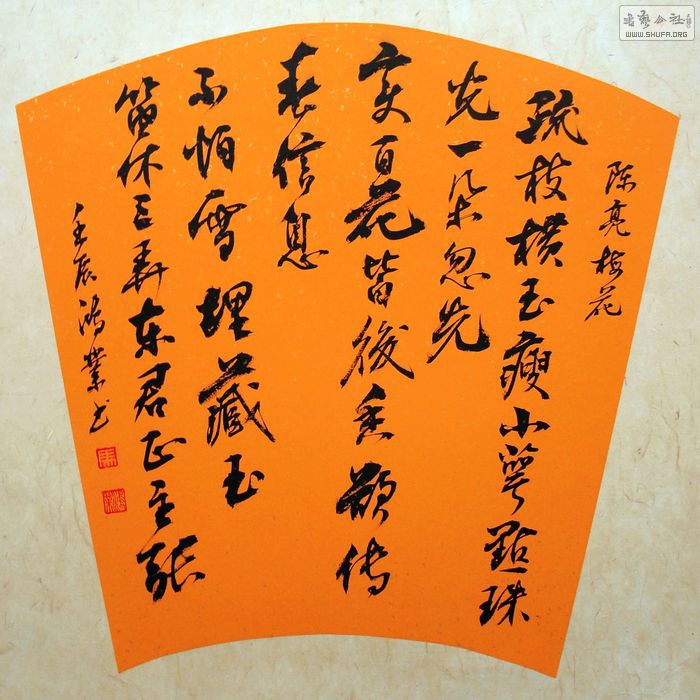 陈亮梅花
疏枝横玉瘦小萼點珠
光一朵忽先
变百花皆後香欲传
春信息
不怕雪埋藏玉
笛休三弄东君正主张
壬辰鸿業书
書藝公社
WWW.SHUFA.ORG